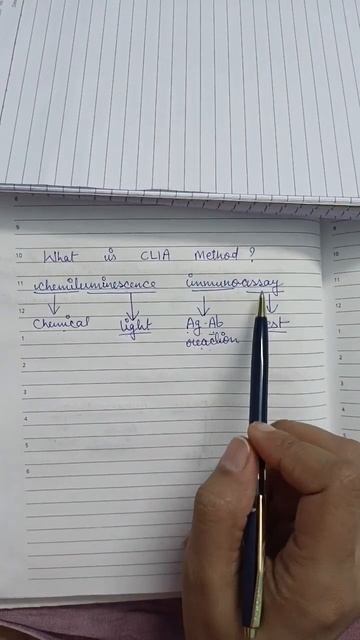 What is CLIA Method ?
chemiluminescence immunoassay
Chemical light Ag-Ab
reaction